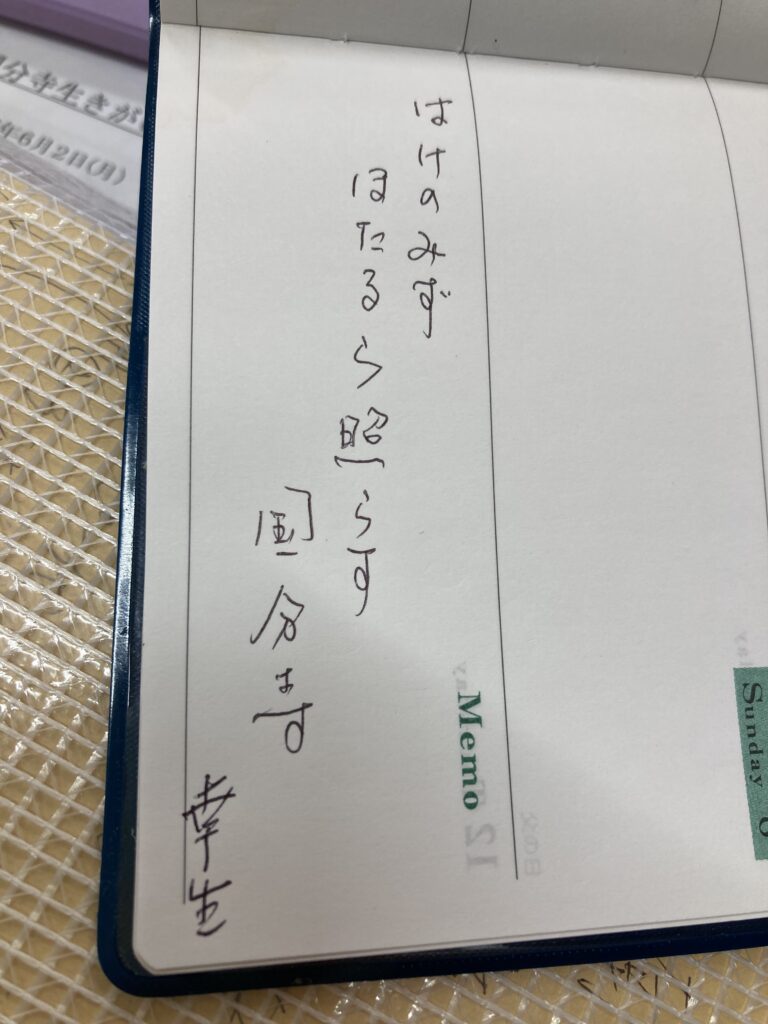 はけのみず
ほたるら照らす
国分寺
幸生
Memo
Sunday
分寺生きが
年6月2日(月)